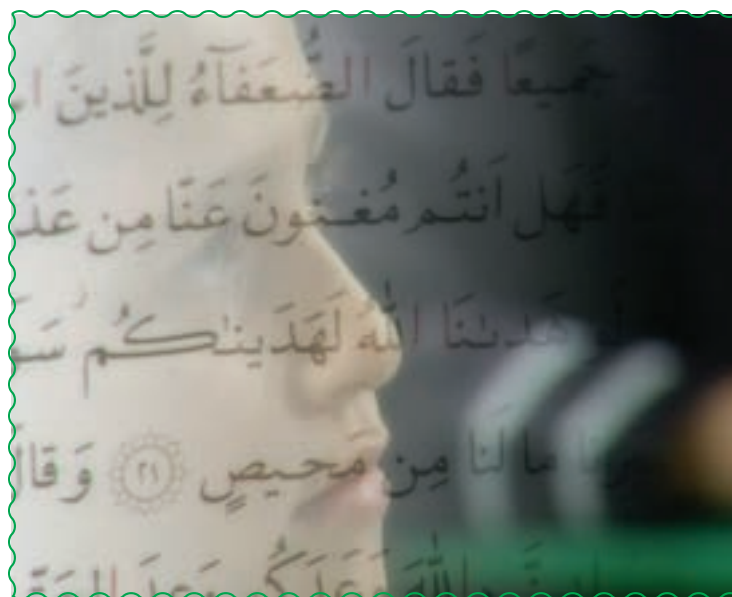 جَميعًا فَقالَ الضُّعَفَآءُ لِلَّذينَ
فَهَل اَنتُم مُغنونَ عَنّا مِن
هَدىٰنَا اللّٰهُ لَهَدَينٰكُم
ما لَنا مِن مَحيصٍ ﴿٢١﴾ وَقالَ
اللّٰهَ وَعَدَكُم وَعدَ